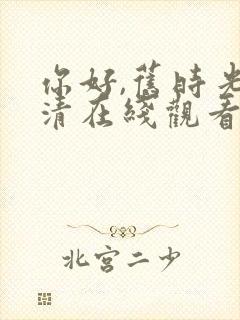 你好,舊時光
清在綫觀看
北宮二少